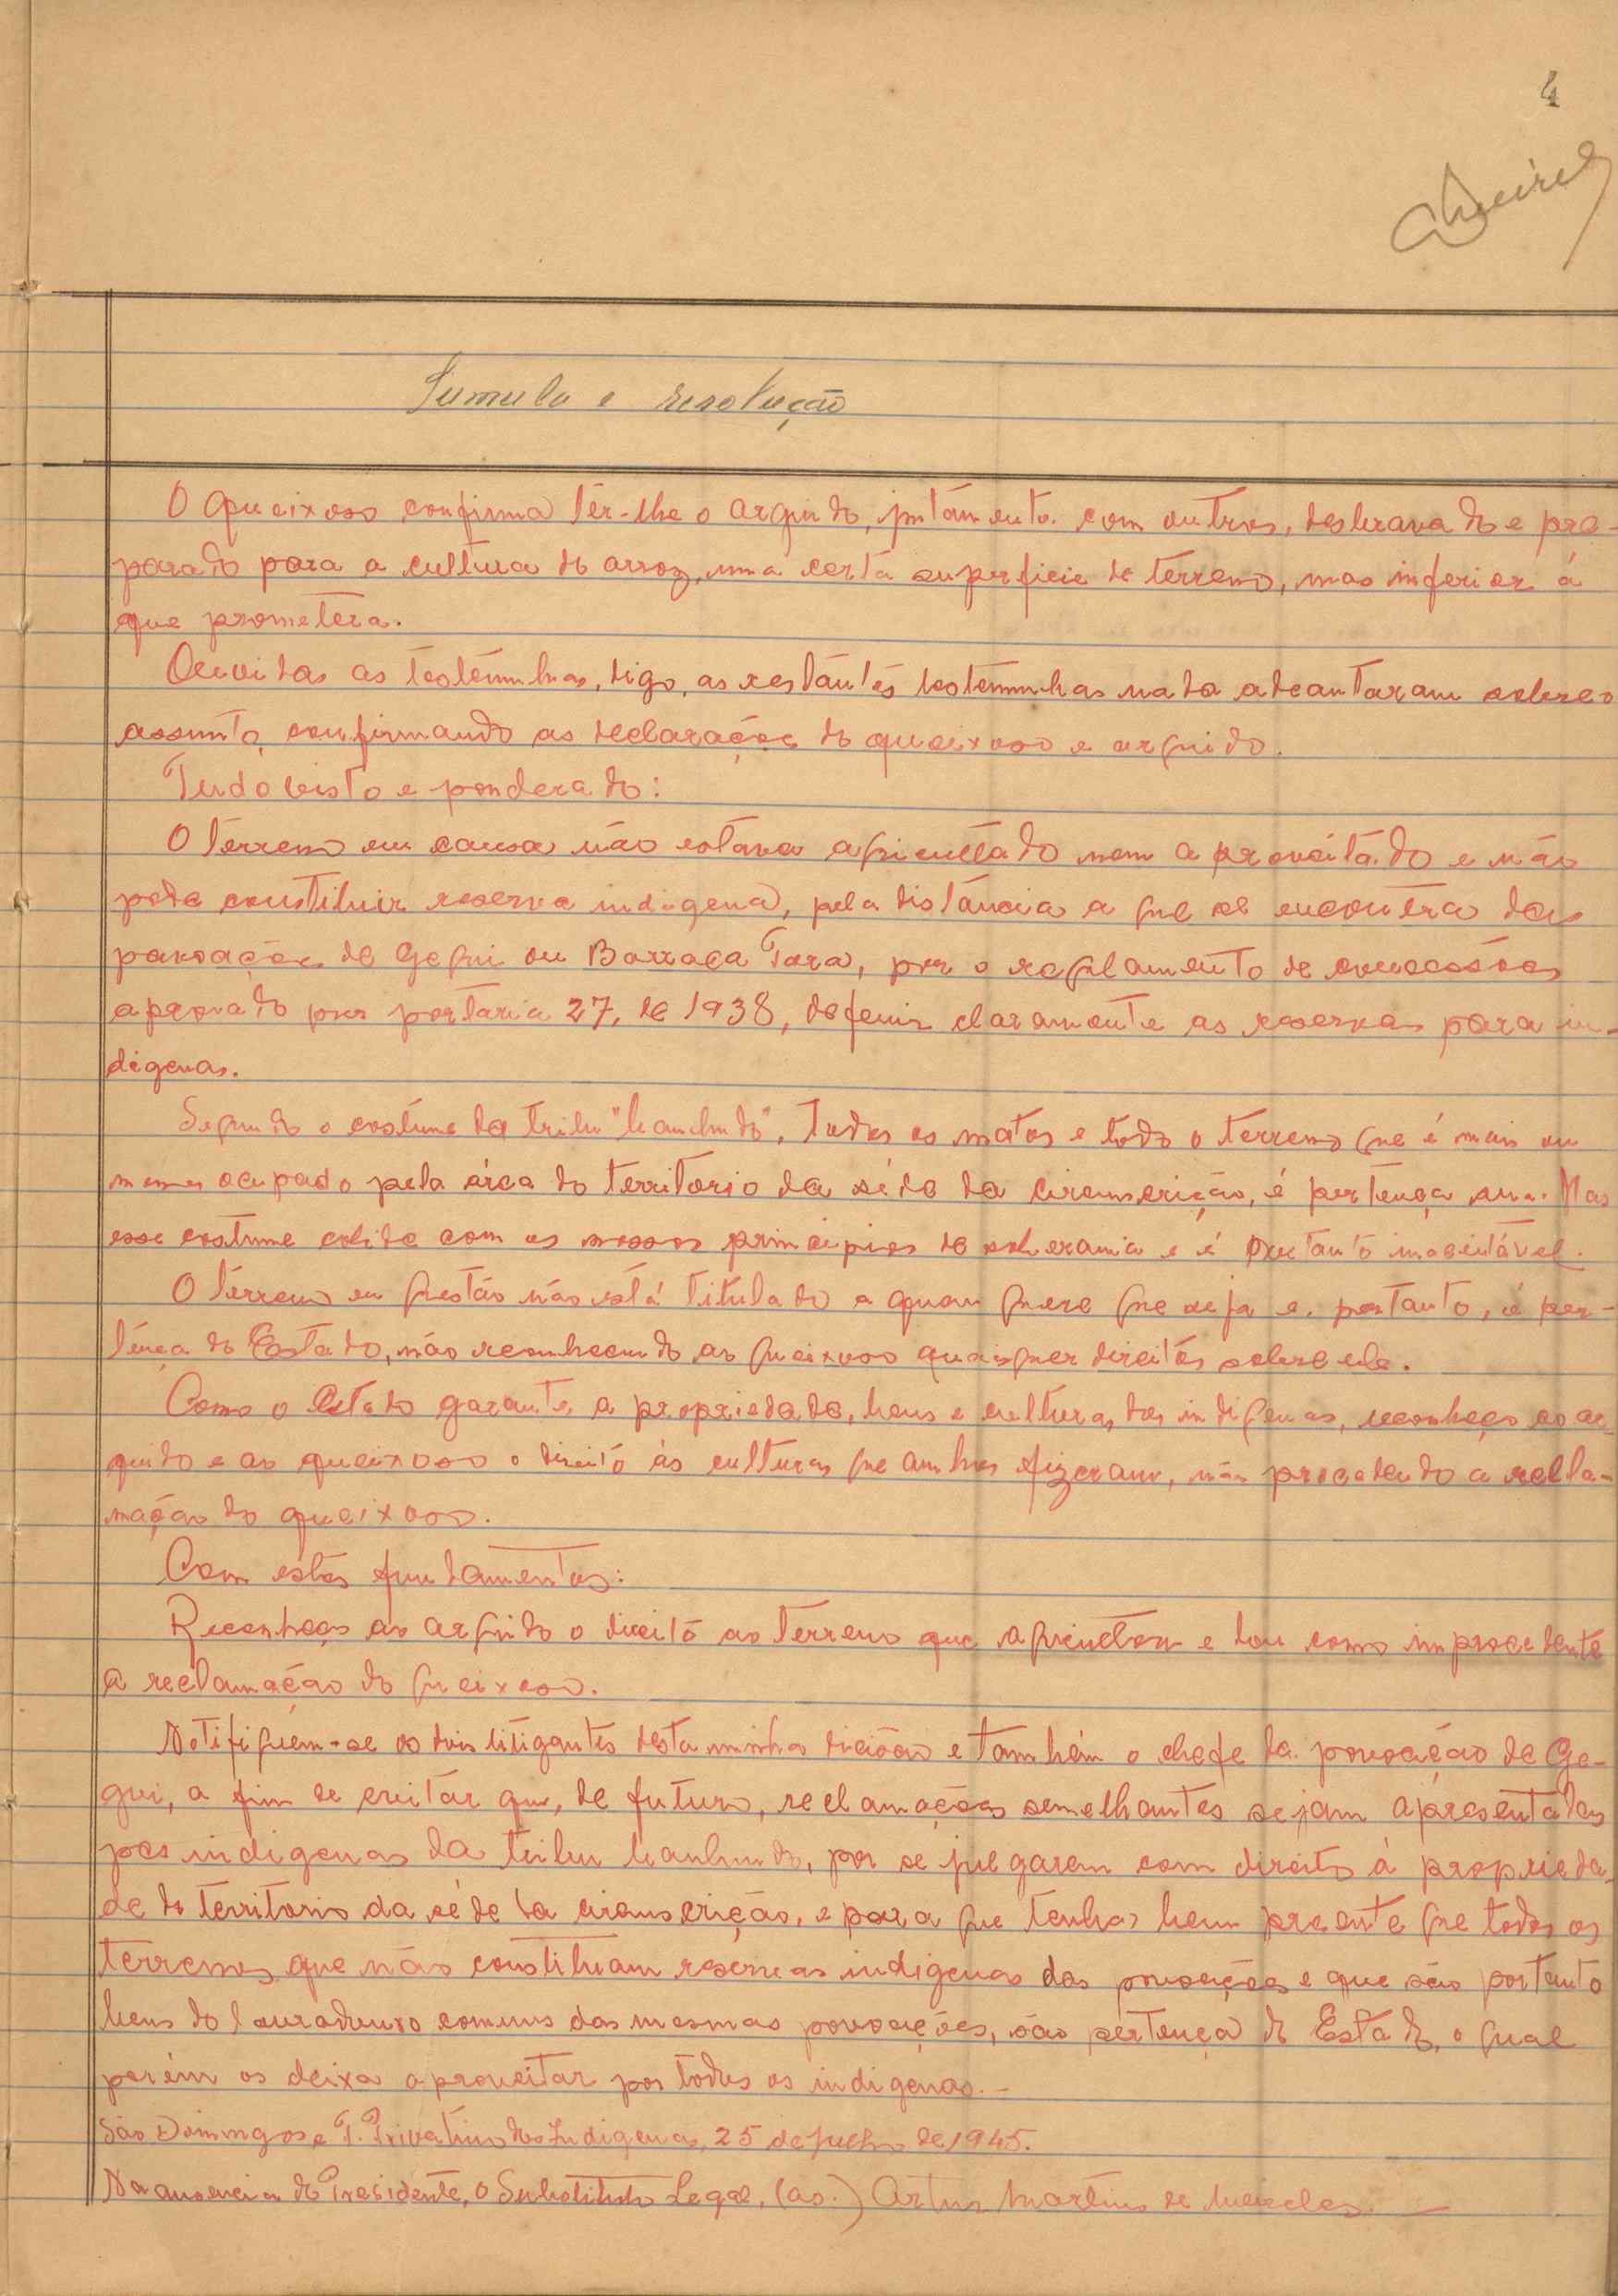 4
Sumula e resolução
O queixoso confirma têr-lhe o arguido, juntamente com outros, desbravado e pre-
parado para a cultura do arroz, uma certa superficie de terreno, mas inferior á
que prometera.
Ouvidas as testemunhas, digo, as restantes testemunhas nada adeantaram sobre o
assunto, confirmando as declarações do queixoso e arguido.
Tudo visto e ponderado:
O terreno em causa não estava agricultado nem aproveitado e não
pode constituir reserva indigena, pela distância a que se encontra das
povoações de Gegui ou Barraca Tara, por o regulamento de concessões
aprovado por portaria 27, de 1938, definir claramente as reservas para in-
digenas.
Segundo o costume da tribu "banhund", todos os matos e todo o terreno que é mais ou
menos ocupado pela área do territorio da séde da circunscrição, é pertença sua. Mas
esse costume colide com os nossos principios de soberania e é portanto inaceitável.
O terreno em questão não está titulado a quem quere que seja e, portanto, é per-
tença do Estado, não reconhecendo ao queixoso quaisquer direitos sobre ele.
Como o Estado garante a propriedade, bens e culturas dos indigenas, reconheço ao ar-
guido e ao queixoso o direito ás culturas que ambos fizeram, não procedendo a recla-
mação do queixoso.
Com estes fundamentos:
Reconheço ao arguido o direito ao terreno que agricultou e dou como improcedente
a reclamação do queixoso.
Notifiquem-se os dois litigantes desta minha dicisão e também o chefe da povoação de Ge-
gui, a fim de evitar que, de futuro, reclamações semelhantes sejam apresentadas
por indigenas da tribu banhund, por se julgarem com direito á proprieda-
de do territorio da séde da circunscrição, e para que tenha bem presente que todos os
terrenos que não constituam reservas indigenas das povoações e que são portanto
bens do logradouro comum das mesmas povoações, são pertença do Estado, o qual
porém os deixa aproveitar por todos os indigenas.-
São Domingos e T. Privativo dos Indigenas, 25 de julho de 1945.
Na ausencia do Presidente, O Substituto Legal, (as.) Artur Martins de Meireles.-